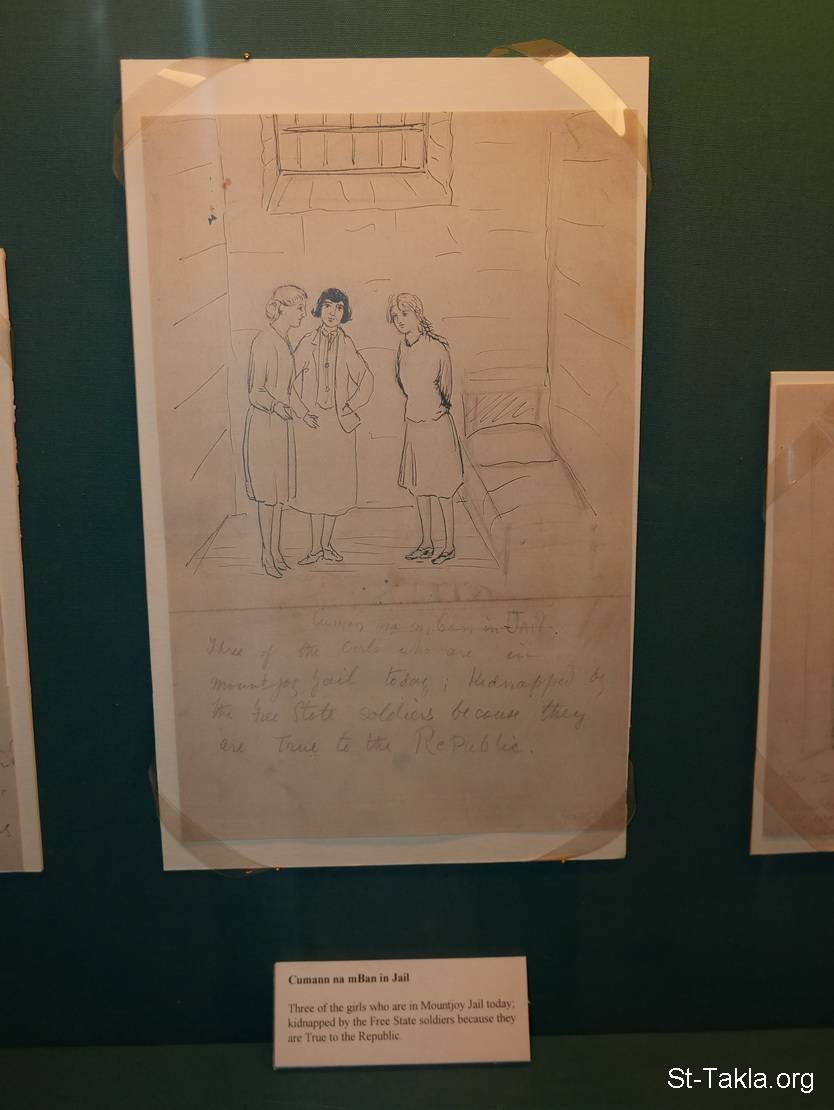 Cuman na mBan in Jail.
Three of the Girls who are in
mountjoy Jail today; Kidnapped by
the Free State soldiers because they
are True to the Republic.
Cumann na mBan in Jail
Three of the girls who are in Mountjoy Jail today;
kidnapped by the Free State soldiers because they
are True to the Republic.
St-Takla.org